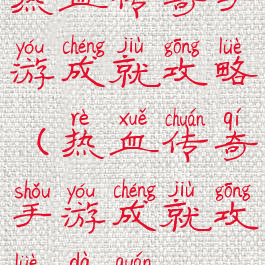 热血传奇手
yóu chéng jiù gōng lüè
游成就攻略
rè xuě chuán qí
（热血传奇
shǒu yóu chéng jiù gōng
手游成就攻
lüè dà quán